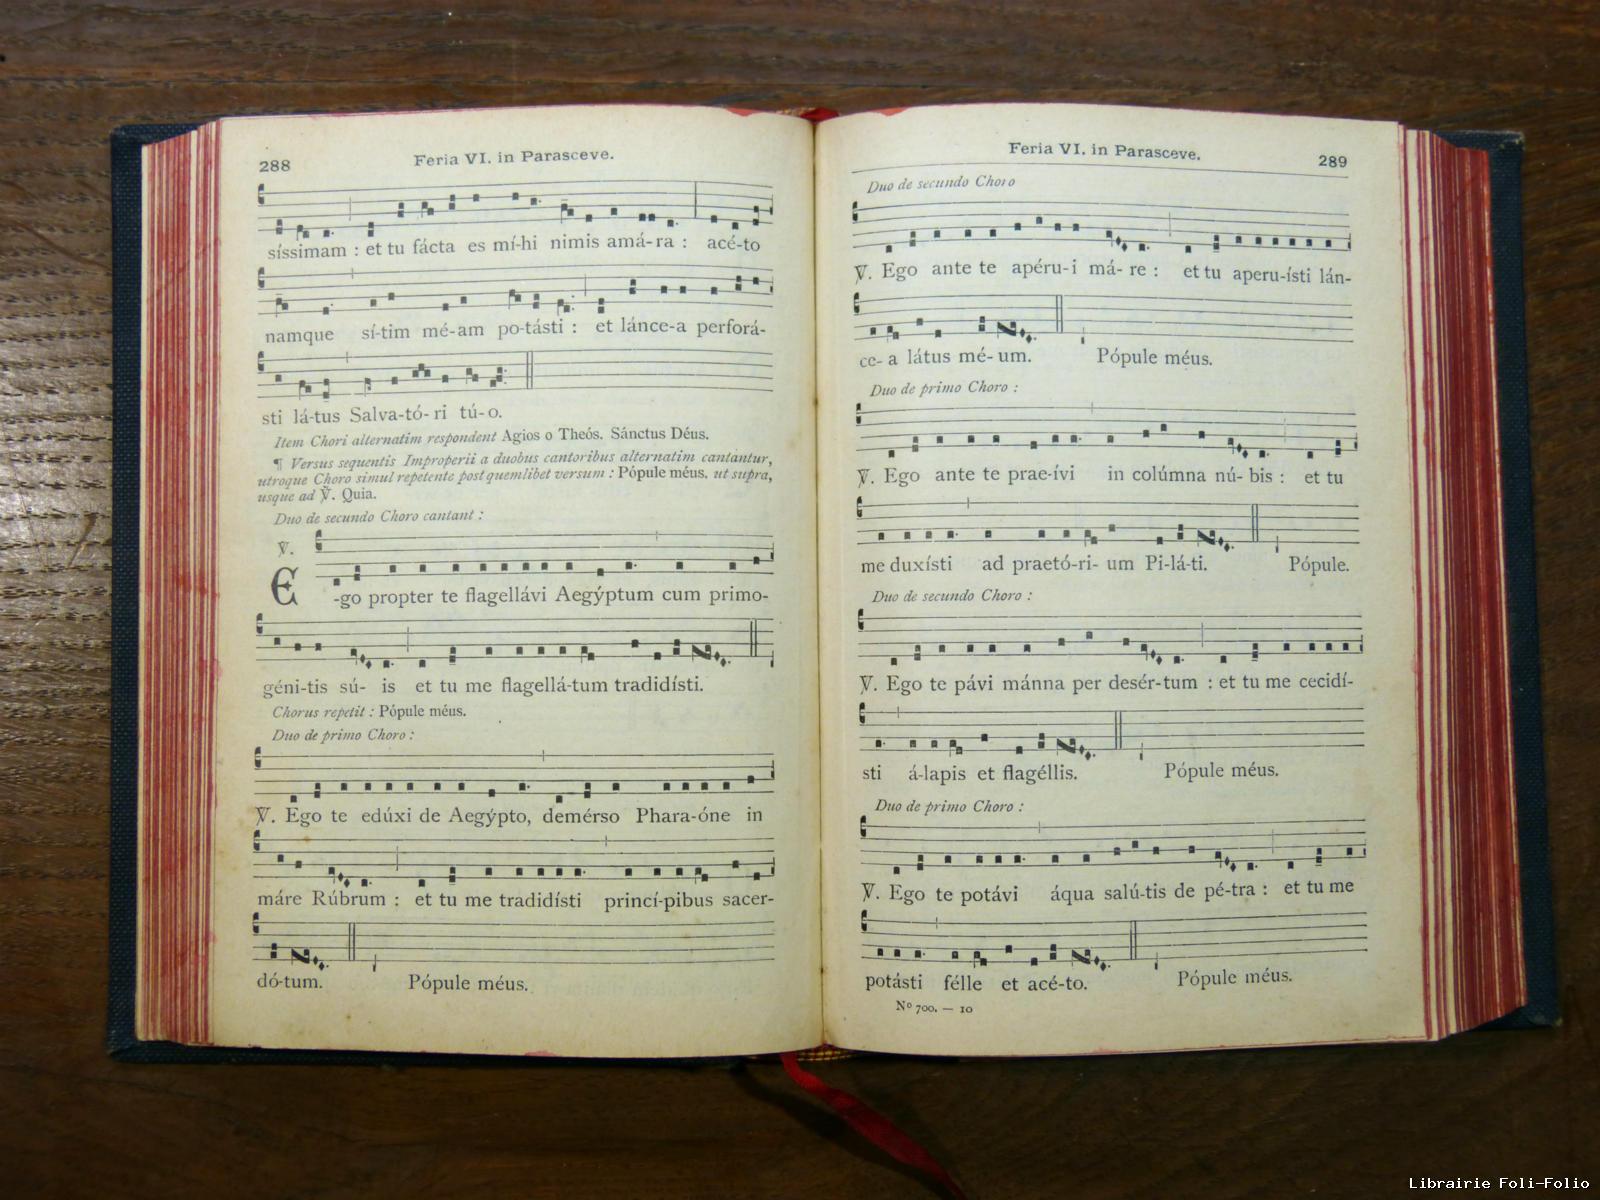 288
Feria VI. in Parasceve.
síssimam : et tu fácta es mí-hi nimis amá-ra : acé-to
namque sí-tim mé-am po-tásti : et lánce-a perforá-
sti lá-tus Salva-tó-ri tú-o.
Item Chori alternatim respondent Agios o Theós. Sánctus Déus.
¶ Versus sequentis Improperii a duobus cantoribus alternatim cantantur,
utroque Choro simul repetente post quemlibet versum : Pópule méus. ut supra,
usque ad ℣. Quia.
Duo de secundo Choro cantant :
℣.
E-go propter te flagellávi Aegýptum cum primo-
géni-tis sú- is et tu me flagellá-tum tradidísti.
Chorus repetit : Pópule méus.
Duo de primo Choro :
℣. Ego te edúxi de Aegýpto, demérso Phara-óne in
máre Rúbrum : et tu me tradidísti princí-pibus sacer-
dó-tum. Pópule méus.
Feria VI. in Parasceve.
289
Duo de secundo Choro
℣. Ego ante te apéru-i má- re : et tu aperu-ísti lán-
ce- a látus mé- um. Pópule méus.
Duo de primo Choro :
℣. Ego ante te prae-ívi in colúmna nú- bis : et tu
me duxísti ad praetó-ri- um Pi-lá-ti. Pópule.
Duo de secundo Choro :
℣. Ego te pávi mánna per desér-tum : et tu me cecidí-
sti á-lapis et flagéllis. Pópule méus.
Duo de primo Choro :
℣. Ego te potávi áqua salú-tis de pé-tra : et tu me
potásti félle et acé-to. Pópule méus.
Nº 700. — 10
Librairie Foli-Folio